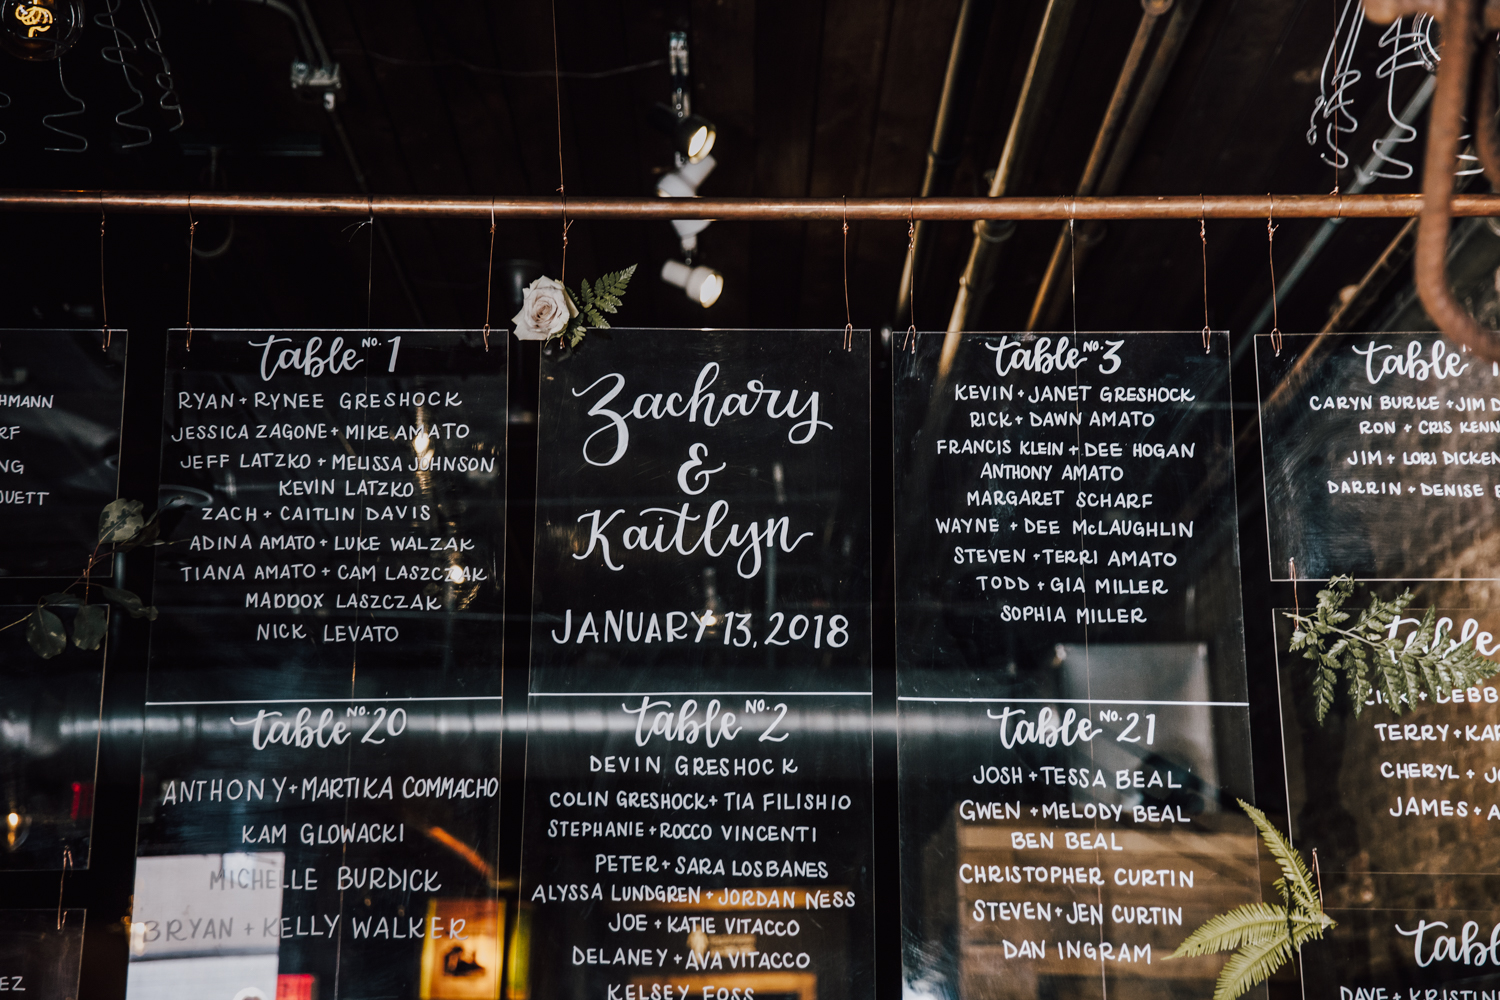 HMANN
RF
NG
OUETT
EZ
table No. 1
RYAN + RYNEE GRESHOCK
JESSICA ZAGONE + MIKE AMATO
JEFF LATZKO + MELISSA JOHNSON
KEVIN LATZKO
ZACH + CAITLIN DAVIS
ADINA AMATO + LUKE WALZAK
TIANA AMATO + CAM LASZCZAK
MADDOX LASZCZAK
NICK LEVATO
table No. 20
ANTHONY + MARTIKA COMMACHO
KAM GLOWACKI
MICHELLE BURDICK
BRYAN + KELLY WALKER
Zachary
&
Kaitlyn
JANUARY 13, 2018
table No. 2
DEVIN GRESHOCK
COLIN GRESHOCK + TIA FILISHIO
STEPHANIE + ROCCO VINCENTI
PETER + SARA LOSBANES
ALYSSA LUNDGREN + JORDAN NESS
JOE + KATIE VITACCO
DELANEY + AVA VITACCO
KELSEY FOSS
table No. 3
KEVIN + JANET GRESHOCK
RICK + DAWN AMATO
FRANCIS KLEIN + DEE HOGAN
ANTHONY AMATO
MARGARET SCHARF
WAYNE + DEE McLAUGHLIN
STEVEN + TERRI AMATO
TODD + GIA MILLER
SOPHIA MILLER
table No. 21
JOSH + TESSA BEAL
GWEN + MELODY BEAL
BEN BEAL
CHRISTOPHER CURTIN
STEVEN + JEN CURTIN
DAN INGRAM
table
CARYN BURKE + JIM D
RON + CRIS KENN
JIM + LORI DICKEN
DARRIN + DENISE
table
+ DEBB
TERRY + KAR
CHERYL + J
JAMES + A
table
DAVE + KRISTIN